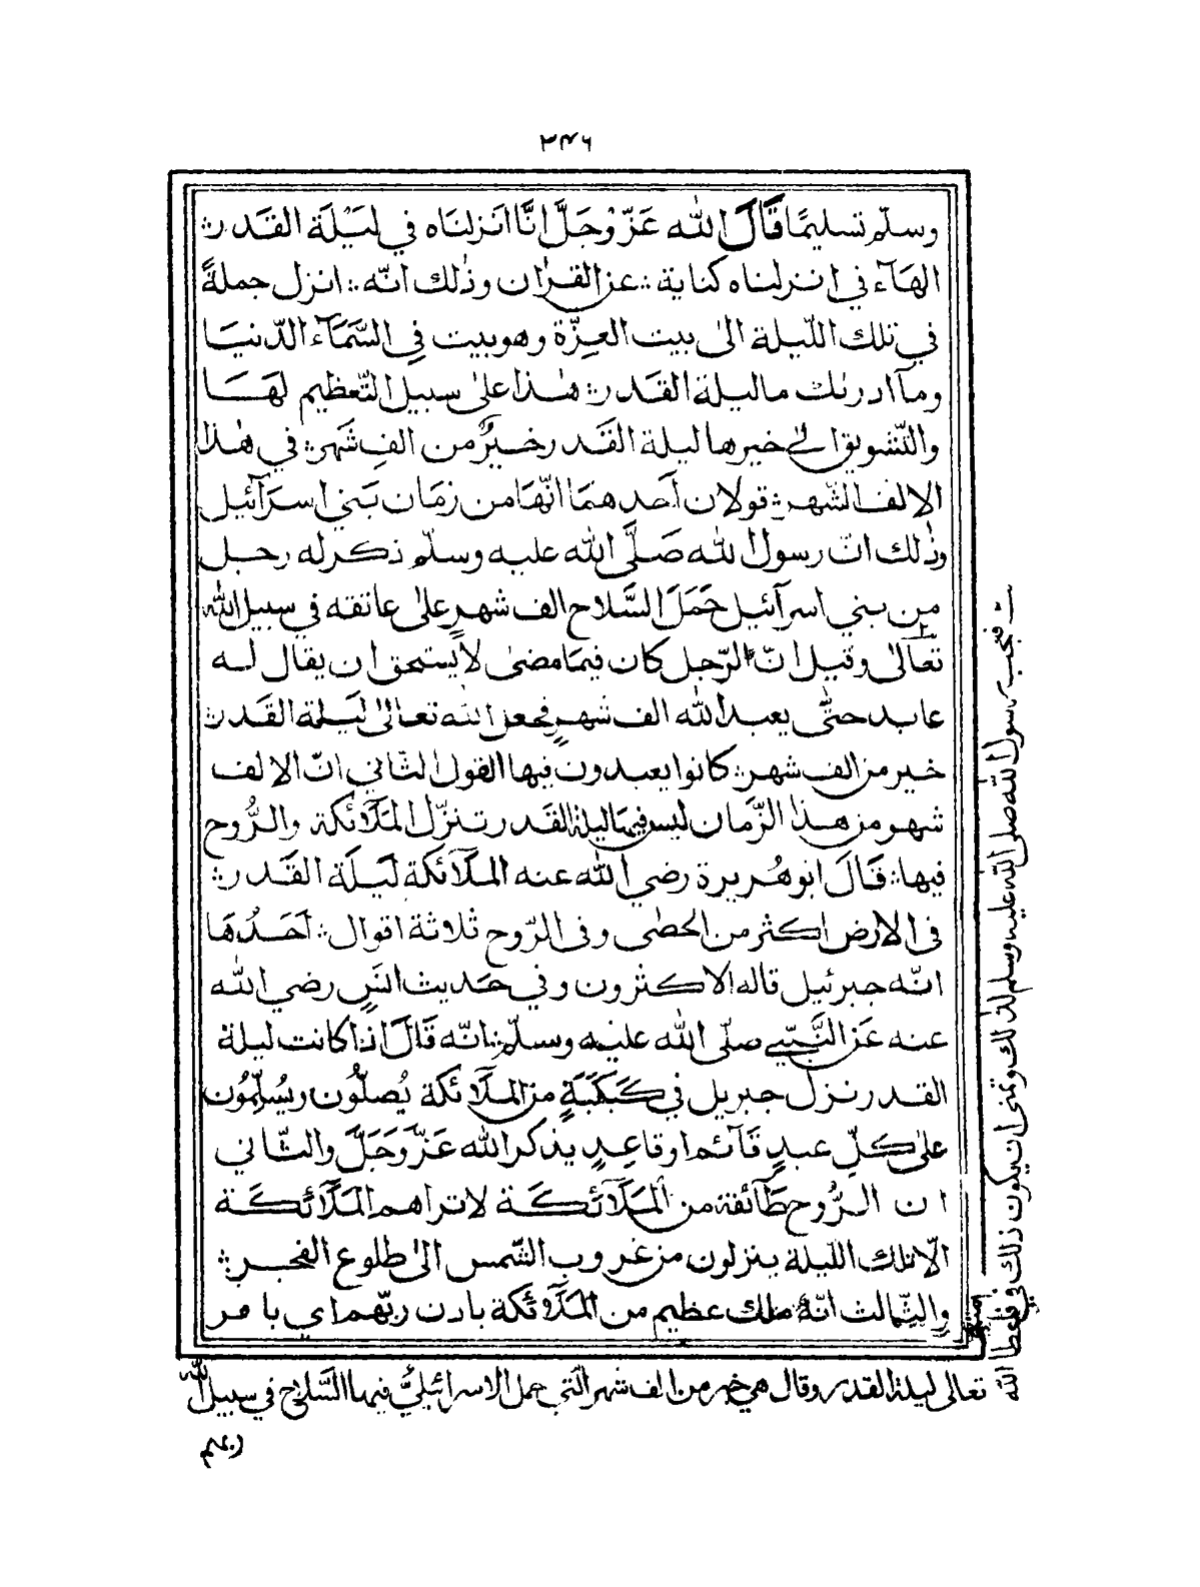 ٣٤٦
وسلّم تسليمًا قَالَ الله عَزّ وْجَلَّ انَّا انزلنَاه في ليَْلَة القَدر؞
الهَآء في انزلناه كناية ؞ عن القرٰان وذٰلك انّه ؞ انزل جملةً
في تلك اللّيلة الىٰ بيت العِزّة وهو بيت فِي السَّمَآء الدّنيَا
ومآ ادرٰىك ما ليلة القَدر ؞ هٰذا علىٰ سبيل التّعظيم لهَا
والتّشويق الےٰ خيرها ليلة القَدر خيرٌ من الفِ شَهر؞ في هٰذا
الالف الشّهر ؞ قولان اَحدهمَا انّهَا من زمَان بَني اسرَآئيل
وذٰلك انّ رسول الله صَلَّى الله عليه وسلّم ذكر له رجل
من بني اسرآئيل حَمَلَ السَّلاح الف شهرٍ علىٰ عاتقه في سبيل الله
تعَالىٰ وقيل انّ الرّجل كان فيمَا مضىٰ لا يستحق ان يقال له
عابد حتّٰى يعبد الله الف شهرٍ فجعل الله تعالىٰ ليَلة القَدر؞
خير من الف شهر؞ كانوا يعبدون فيها القول الثّاني انّ الالف
شهر من هذا الزّمان ليس فيها ليلة القَدر تنزّل المَلآئكة والرُّوح
فيها؞ قَالَ ابو هُريرة رضي الله عنه الملآئكة ليَلَة القَدر؞
في الارض اكثر من الحصٰى وفى الرّوح ثلاثة اقوال؞ اَحَدُهَا
انّه جبرئيل قاله الاكثرون وفي حَديث انَسٍ رضي الله
عنه عَن النَّبّيے صلّى الله عليْه وسلّم؞ انّه قَالَ اذا كانت ليلة
القدر نزل جبريل في كَبكَبَةٍ من الملَآئكة يُصلّوُن ويُسلّمُون
علىٰ كلّ عبدٍ قَآئم او قاعِدٍ يذكر الله عَزَّ وَجَلَّ والثّاني
ان الرُّوح طَآئفة من المَلَآئكَة لا تراهم المَلَآئكَة
الّا تلك اللّيلة ينزلون من غروب الشّمس الىٰ طلوع الفجر؞
والثّالث انّهٗ ملك عظيم من المَلَآئكة باذن ربّهم اي بامر
؞ فتجب رسول الله صلى الله عليه وسلم لذلك وتمنى ان يكون ذلك في فاعطا الله
تعالى ليلة القدر وقال هي خير من الف شهر الّتي حمل الاسرائيليُّ فيها السَّلاح في سبيل الله
ربهم